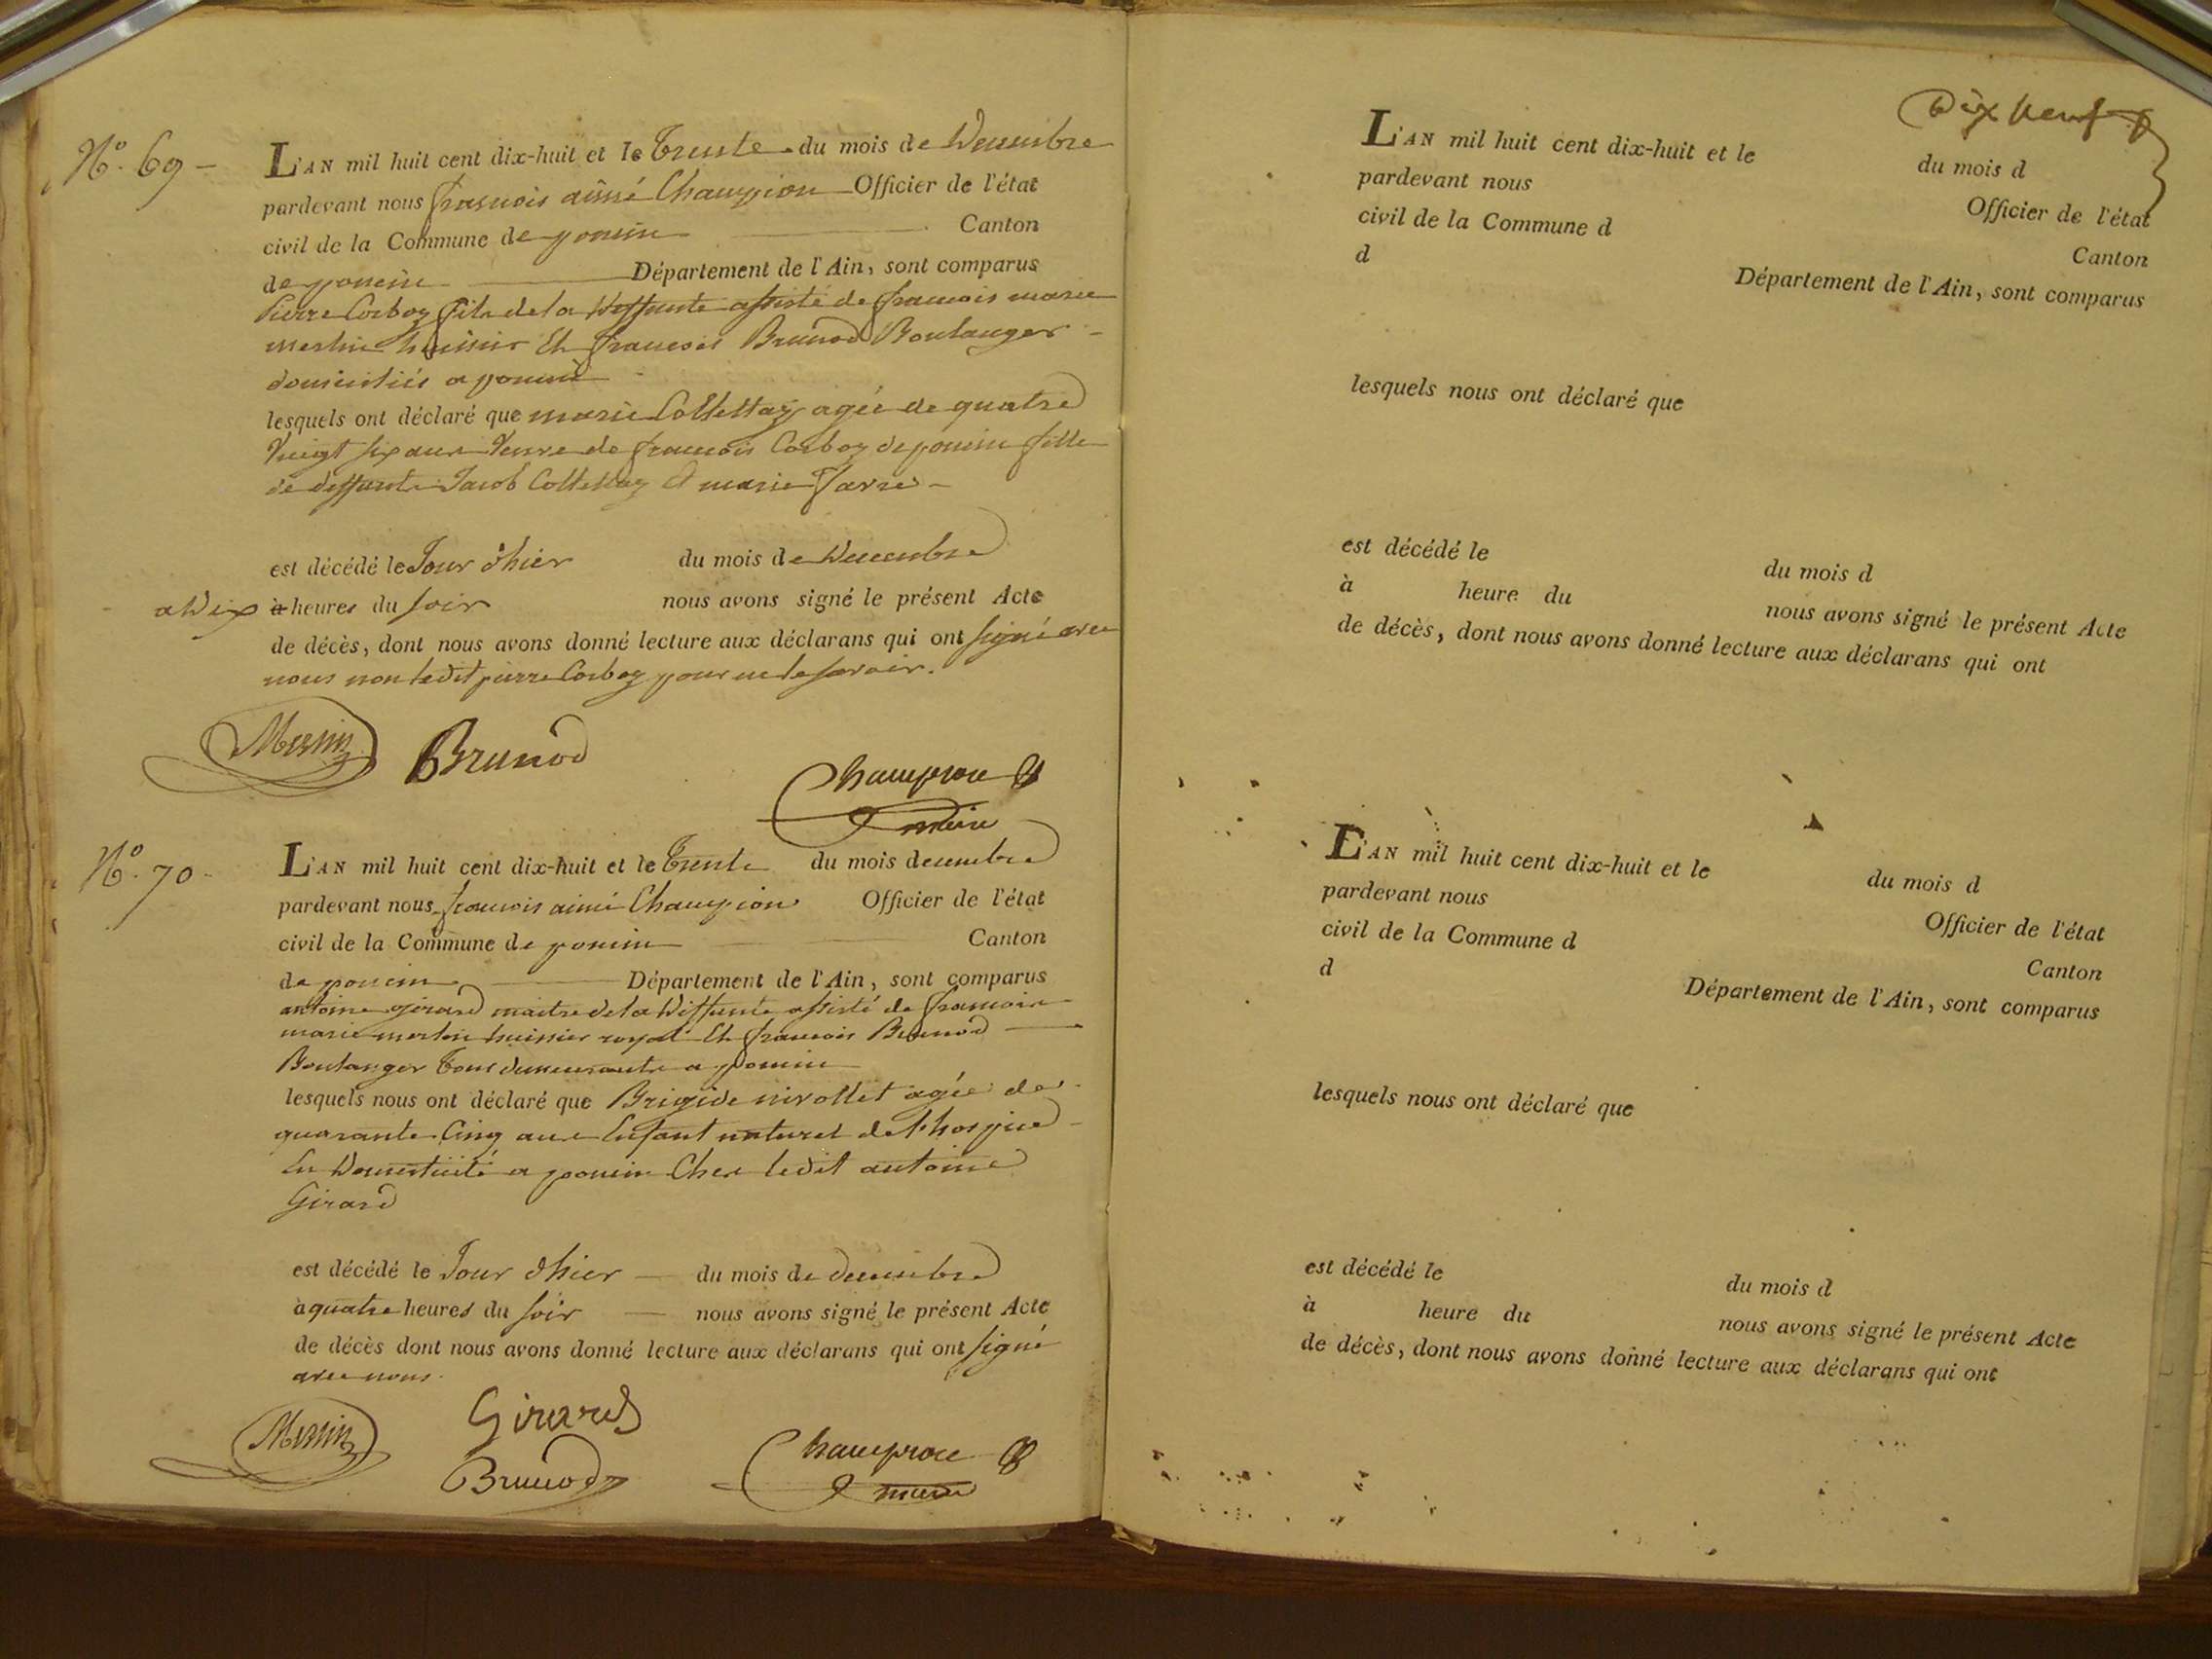 N.º 69 -
L'AN mil huit cent dix-huit et le trente du mois de Decembre
pardevant nous francois aimé Champion Officier de l'état
civil de la Commune de poncin Canton
de poncin Département de l'Ain, sont comparus
Pierre Corboz fils de la deffunte assisté de francois marie
merlin huissier Et francois Brunod Boulanger -
domiciliés a poncin
lesquels ont déclaré que marie Collettaz agée de quatre
Vingt six ans Veuve de francois Corboz de poncin fille
de deffunts Jacob Collettaz Et marie favre -
est décédé le Jour d'hier du mois de Decembre
a dix à heures du soir nous avons signé le présent Acte
de décès, dont nous avons donné lecture aux déclarans qui ont signé avec
nous non ledit pierre Corboz pour ne le savoir.
Merlin Brunod
Champion
maire
N.º 70 -
L'AN mil huit cent dix-huit et le trente du mois decembre
pardevant nous francois aimé Champion Officier de l'état
civil de la Commune de poncin Canton
de poncin Département de l'Ain, sont comparus
antoine girard maitre de la deffunte assisté de francois
marie merlin huissier royal Et francois Brunod
Boulanger tous demeurants a poncin
lesquels nous ont déclaré que Brigide nivollet agée de
quarante Cinq ans Enfant naturel de l'hospice
En Domesticité a poncin Chez ledit antoine
Girard
est décédé le Jour d'hier du mois de decembre
à quatre heures du soir nous avons signé le présent Acte
de décès dont nous avons donné lecture aux déclarans qui ont signé
avec nous.
Merlin Girard
Brunod
Champion
maire
Dix neuf
L'AN mil huit cent dix-huit et le du mois d
pardevant nous Officier de l'état
civil de la Commune d Canton
d Département de l'Ain, sont comparus
lesquels nous ont déclaré que
est décédé le du mois d
à heure du nous avons signé le présent Acte
de décès, dont nous avons donné lecture aux déclarans qui ont
L'AN mil huit cent dix-huit et le du mois d
pardevant nous Officier de l'état
civil de la Commune d Canton
d Département de l'Ain, sont comparus
lesquels nous ont déclaré que
est décédé le du mois d
à heure du nous avons signé le présent Acte
de décès, dont nous avons donné lecture aux déclarans qui ont